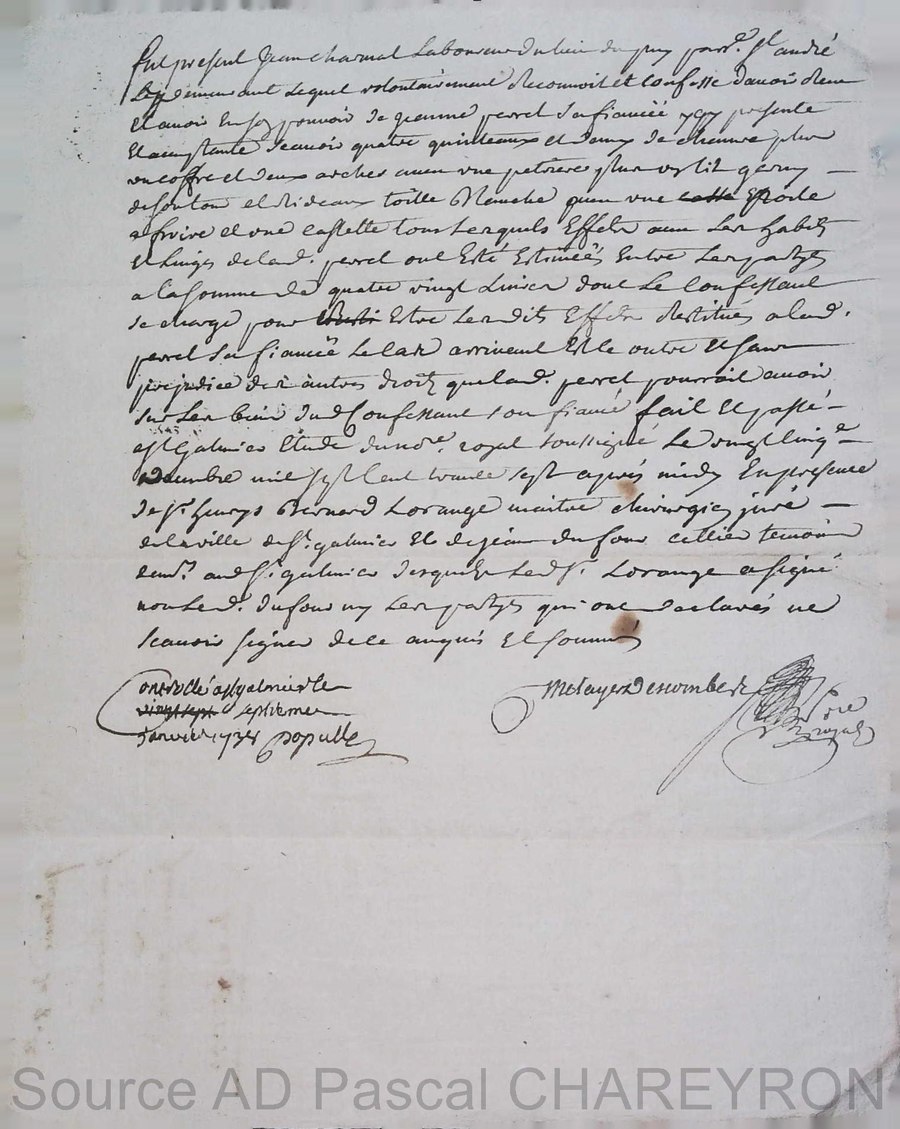 fut present Jean charmat Laboureur du lieu du puy parr.e st andré
Lepy demeurant Lequel volontairement Reconnoit et Confesse d'avoir Receu
Et avoir En son pouvoir de jeanne perret Sa fiancéé ycy presente
Et acceptante Scavoir quatre quinteaux et demy de chanvre plus
un coffre et deux arches avec une petriere plus un lit garny
de son tour et Rideaux toille Blanche plus une Epoële
a froire et une Cassette tous Lesquels Effets avec Les habits
et Linges de lad. perret ont Esté Estimées Entre Les partyes
a la somme de quatre vingt Livres dont Le Confessant
se charge pour Estre Lesdits Effets Restitués a lad.
perret Sa fiancéé Le Cas arrivant Et le outre et sans
prejudice des autres droits que lad. perret pourroit avoir
sur Les biens dud Confessant son fiancé fait Et passé
a st Galmier Etude du no.re royal soussigné Le vingt cinq.e
mil sept cent trente sept apres midy En presence
de sr henrys Bernard Lorange maitre chirurgien juré
de la ville de st. galmier Et de jean dufour cellier temoins
dem.t aud st. galmier Lesquels Led sr. Lorange a signé
non Led. dufour ny Les partyes qui ont declarés ne
scavoir signer de ce enquis Et sommés
Controllé a st galmier le
septieme
Janvier 1738 populle
metayer Descombes
no.re
royal
Source AD Pascal CHAREYRON